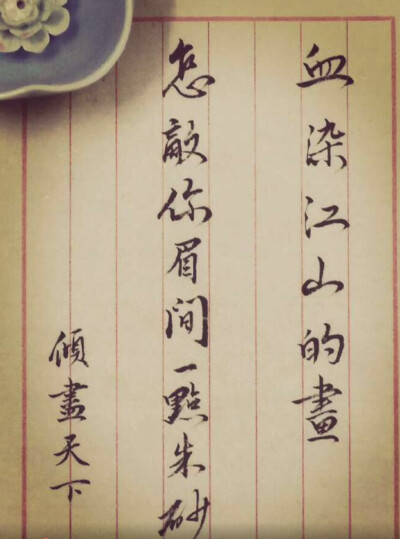 血染江山的畫
怎敵你眉間一點朱砂
傾盡天下